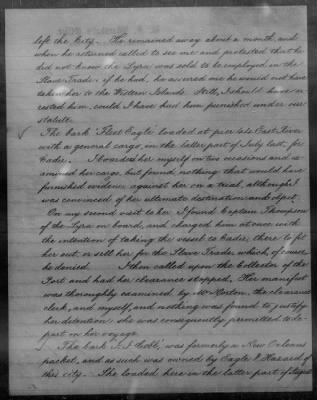 left the City. He remained away about a month, and
when he returned called to see me and protested that he
did not know the Lyra was sold to be employed in the
Slave Trade; if he had, he assured me he would not have
taken her to the Western Islands. Still, I should have ar-
rested him, could I have had him punished under our
statute.
The bark "Fleet Eagle" loaded at pier 12 East River
with a general cargo, in the latter part of July last, for
Cadiz. I boarded her myself on two occasions and ex-
amined her cargo, but found, nothing that would have
furnished evidence against her on a trial, although I
was convinced of her ultimate destination and object.
On my second visit to her I found Captain Thompson
of the Lyra on board, and charged him at once with
the intention of taking the vessel to Cadiz, there to fit
her out, or sell her for the Slave Trade, which, of course
he denied. I then called upon the Collector of the
Port and had her clearance stopped. Her manifest
was thoroughly examined by Mr. Norton, the clearance
clerk, and myself, and nothing was found to justify
her detention; she was consequently permitted to de-
part on her voyage.
The bark "J. J. Cobb", was formerly a New Orleans
packet, and as such was owned by Eagle & Hazard of
this city. She loaded here in the latter part of August